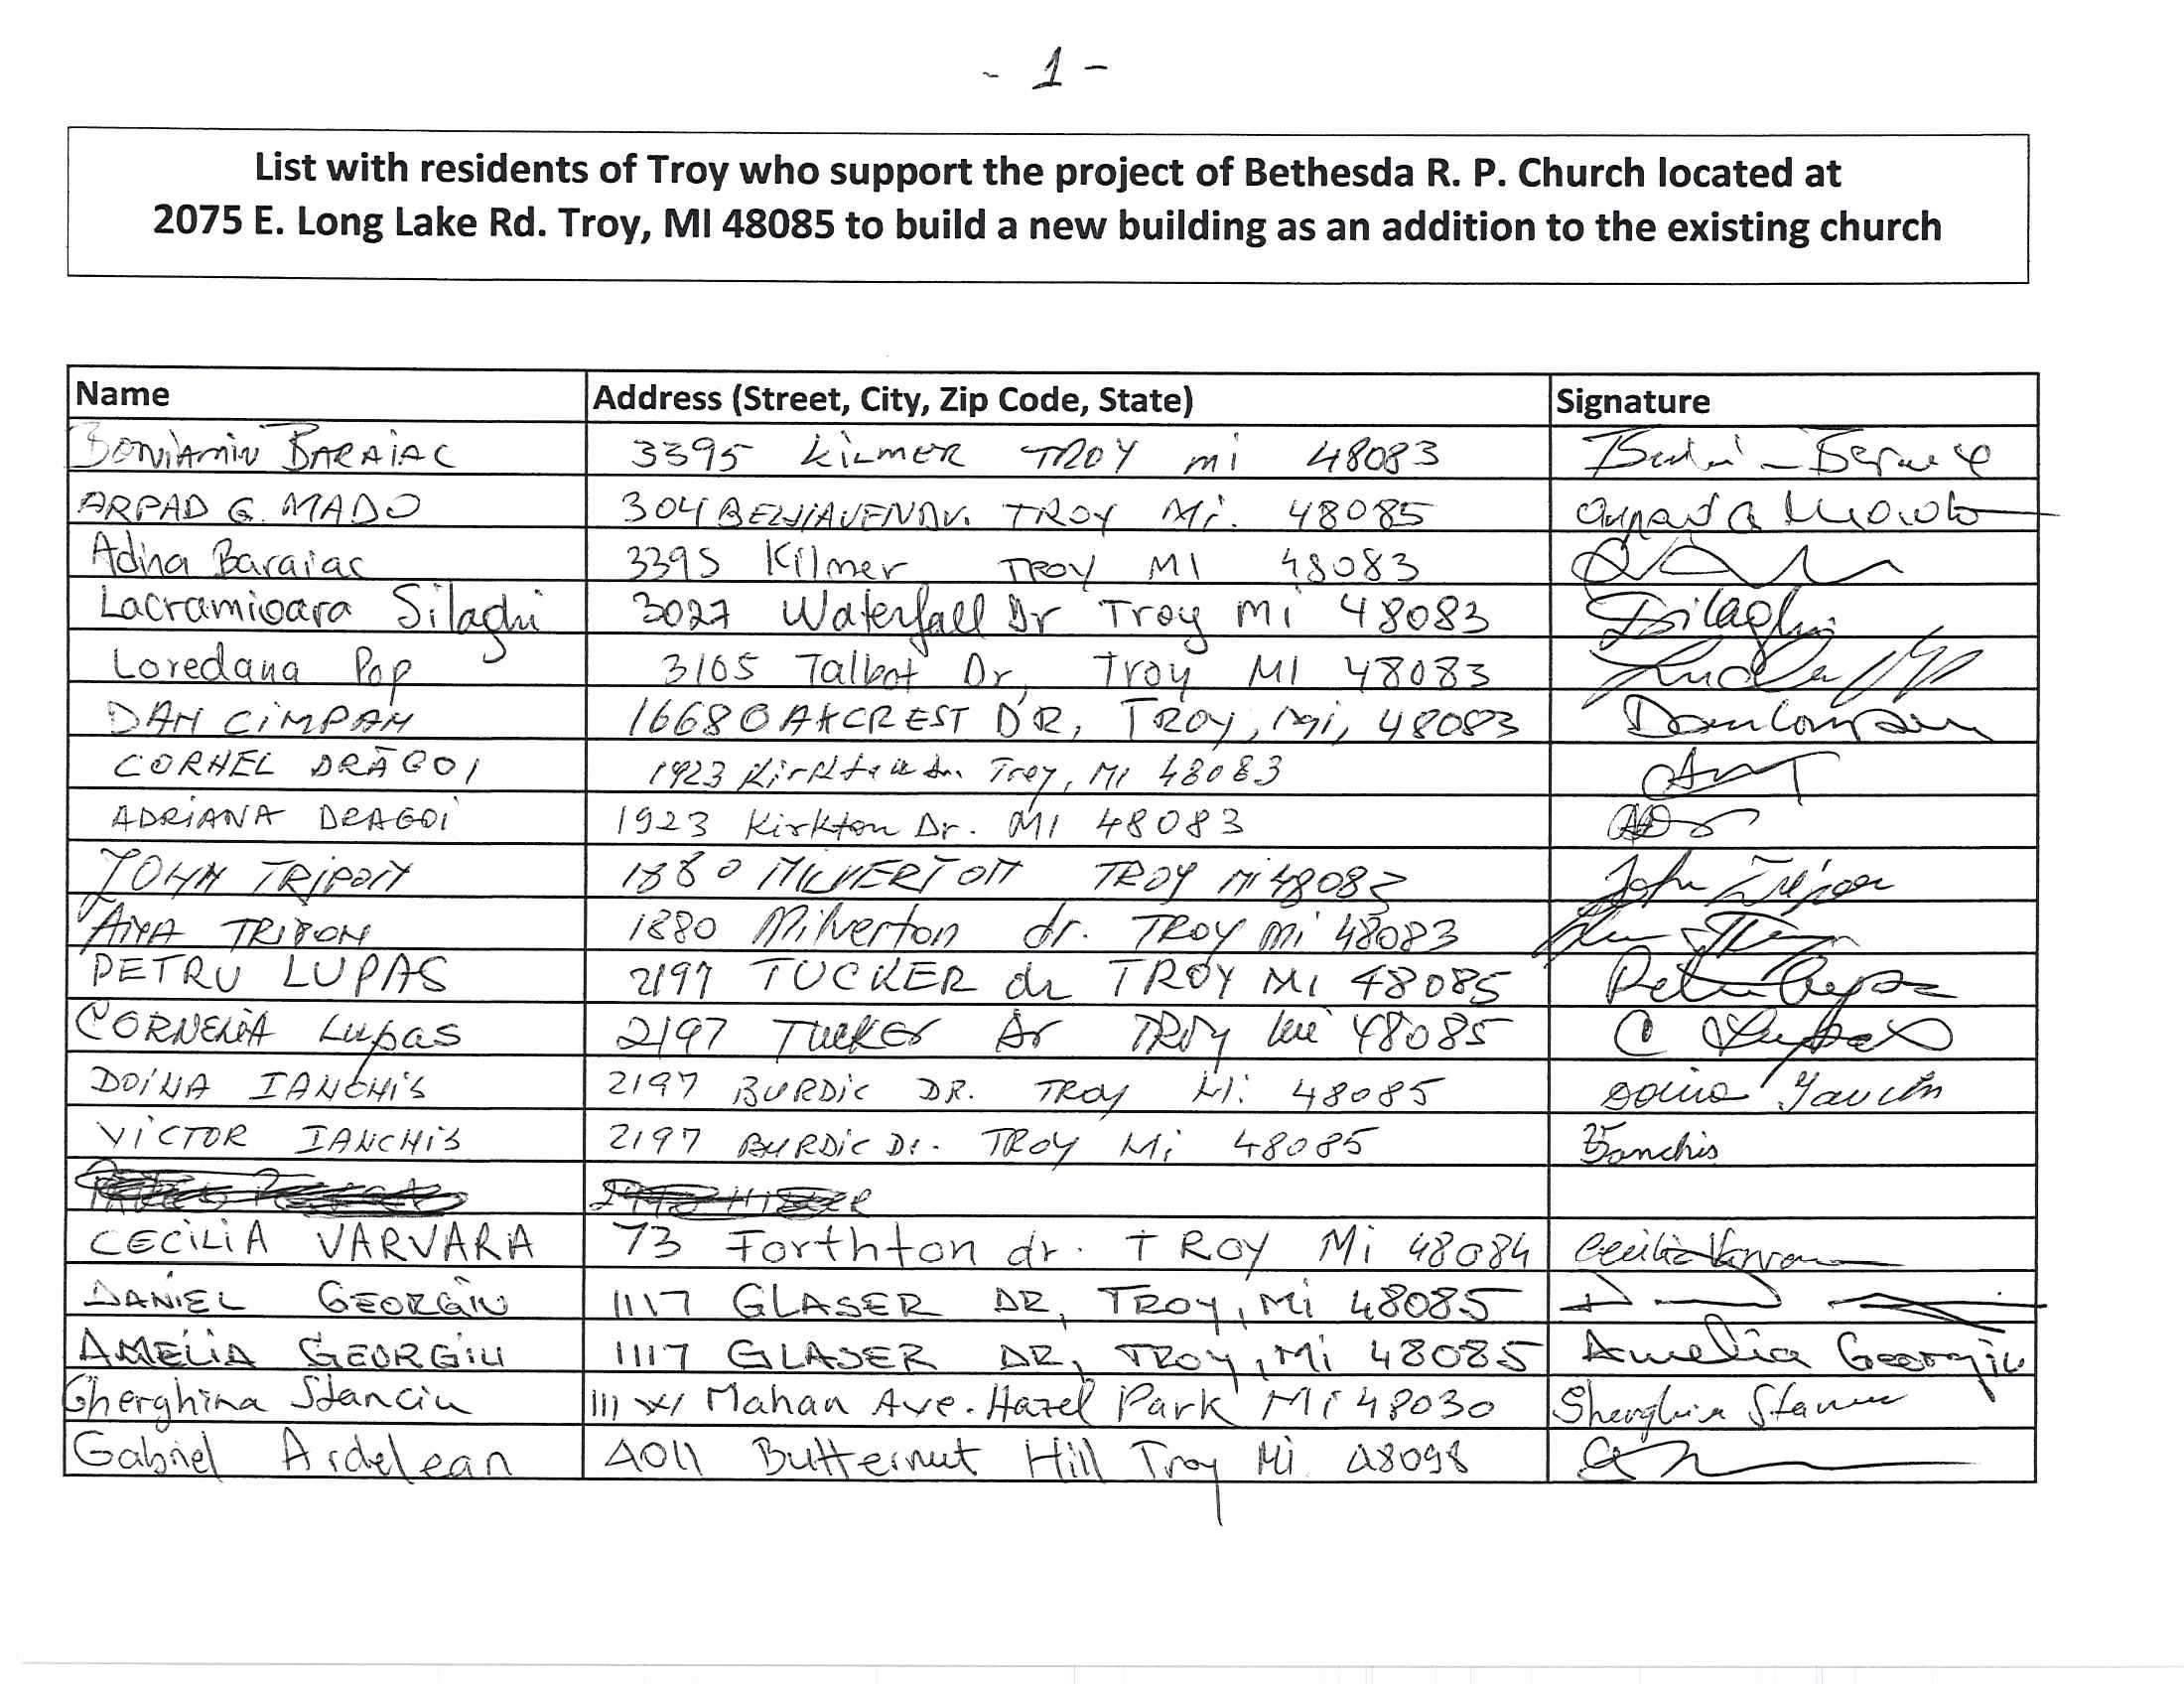 - 1 -
List with residents of Troy who support the project of Bethesda R. P. Church located at
2075 E. Long Lake Rd. Troy, MI 48085 to build a new building as an addition to the existing church
Name Address (Street, City, Zip Code, State) Signature
BARAIAC 3395 KiLMER TROY mi 48083
ARPAD G. MADO 304 TROY Mi. 48085
Adina Baraiac 3395 Kilmer TROY MI 48083
Lacramioara Silaghi 3027 Waterfall Dr Troy Mi 48083 Silaghi
Loredana Pop 3165 Talbot Dr, Troy MI 48083
DAN CiMPAN 1668 OAKCREST DR, TROY, Mi, 48083
CORNEL DRĂGOI 1923 Kirkton Dr. Troy, Mi 48083
ADRiANA DRAGOi 1923 Kirkton Dr. MI 48083
JOHN TRiPON 1880 MILVERTON TROY Mi 48083 John Tripon
ANA TRIPON 1880 Milverton dr. TROY Mi 48083
PETRU LUPAS 2197 TUCKER dr TROY Mi 48085 Petru Lupas
CORNELIA Lupas 2197 TUCKER Dr TROY Mi 48085 C Lupas
DOiNA IANCHiS 2197 BURDiC DR. TROY Mi. 48085 Doina Ianchis
ViCTOR IANCHiS 2197 BURDiC Dr. TROY Mi 48085 Ianchis
CECiLiA VARVARA 73 Forthton dr. TROY Mi 48084 Cecilia Varvara
DANiEL GEORGiU 1117 GLASER DR, TROY, Mi 48085
AMELiA GEORGiU 1117 GLASER DR, TROY, Mi 48085 Amelia Georgiu
Gherghina Stanciu 111 W Mahan Ave. Hazel Park Mi 48030 Gherghina Stanciu
Gabriel Ardelean 4011 Butternut Hill Troy Mi 48098